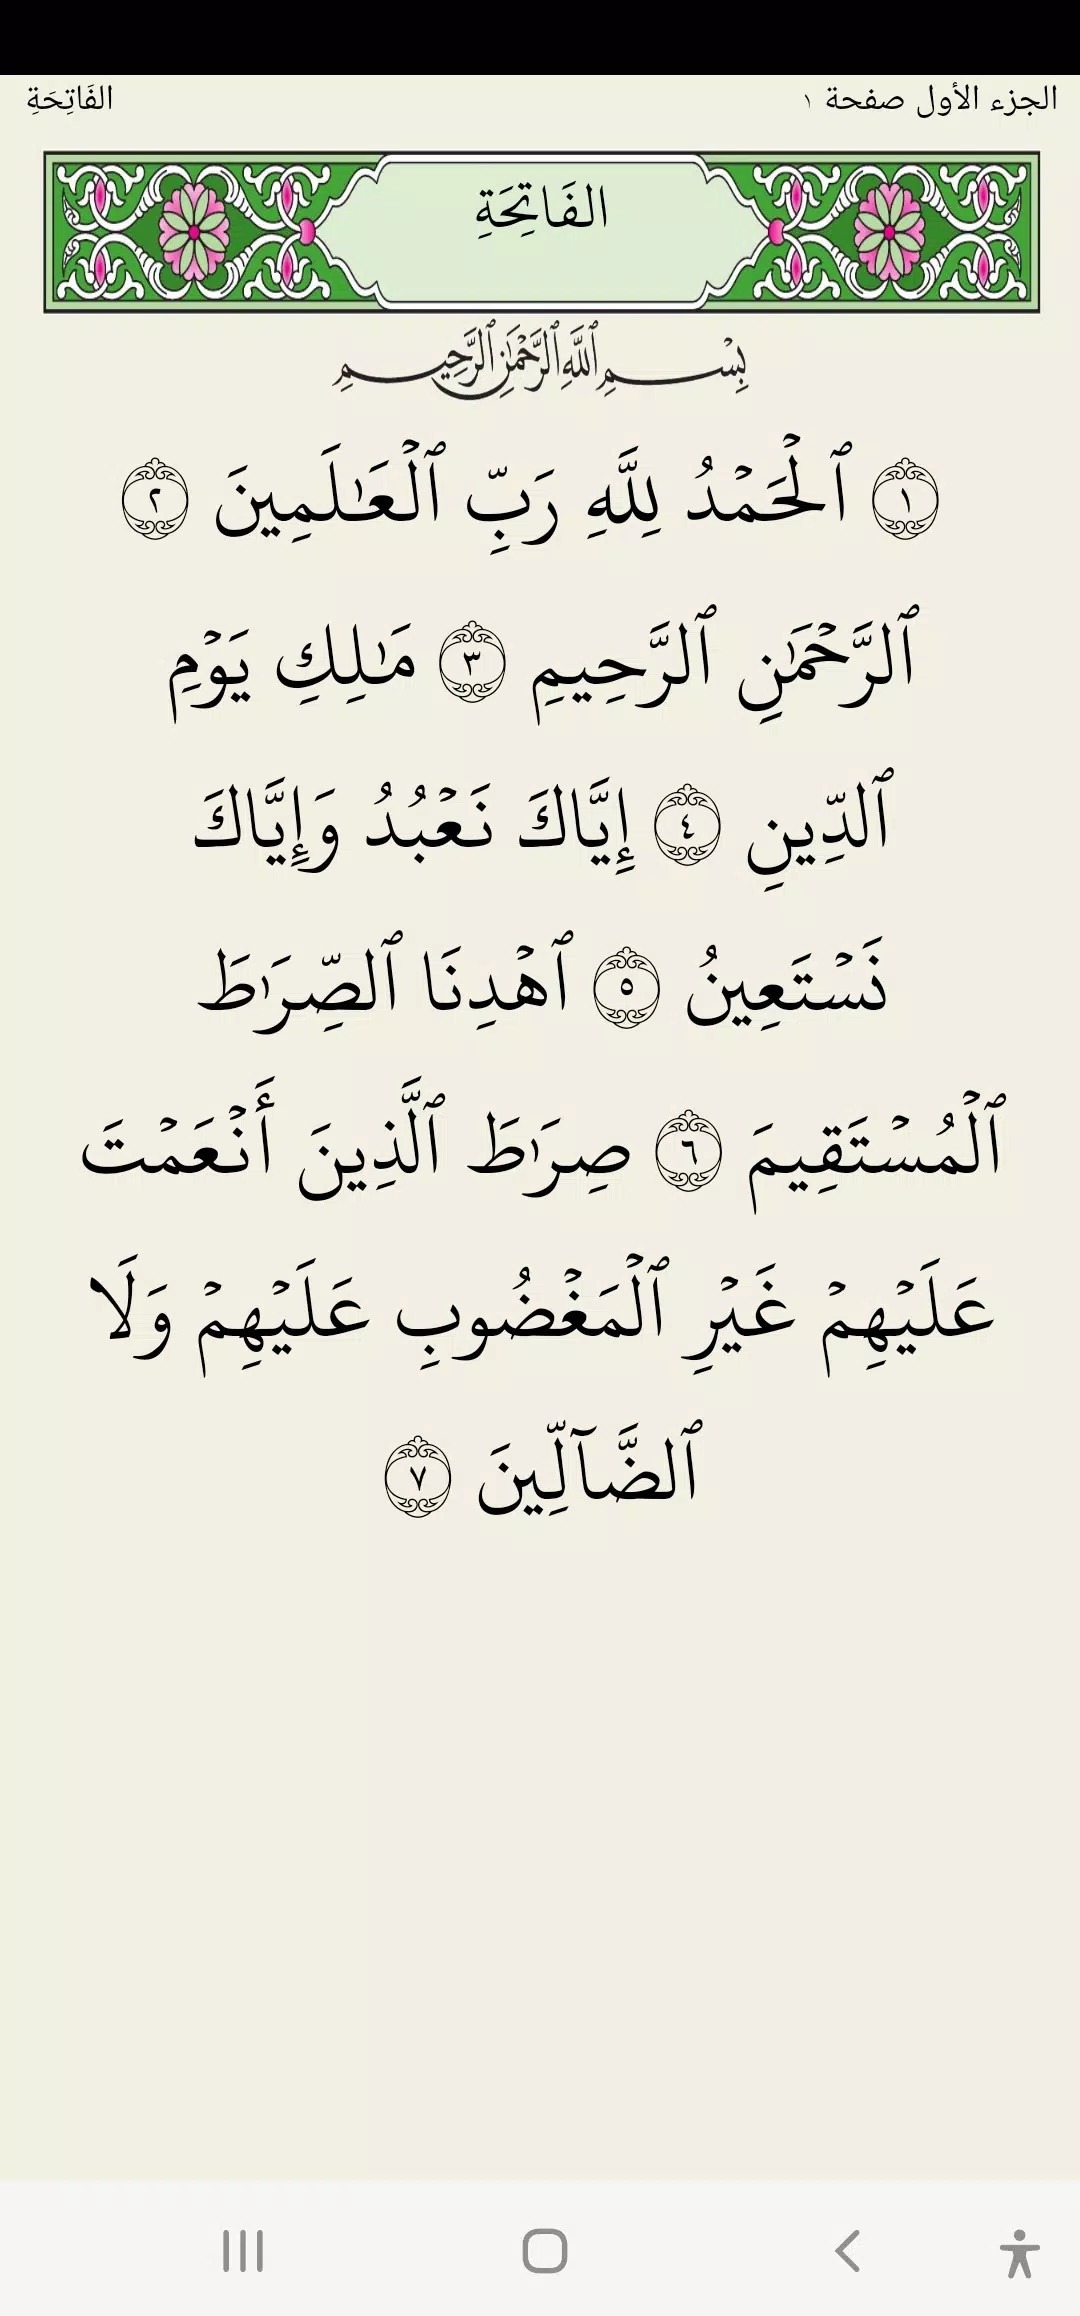 الجزء الأول صفحة ١
الفَاتِحَةِ
الفَاتِحَةِ
بِسْمِ ٱللَّهِ ٱلرَّحْمَٰنِ ٱلرَّحِيمِ
١ ٱلْحَمْدُ لِلَّهِ رَبِّ ٱلْعَٰلَمِينَ ٢
ٱلرَّحْمَٰنِ ٱلرَّحِيمِ ٣ مَٰلِكِ يَوْمِ
ٱلدِّينِ ٤ إِيَّاكَ نَعْبُدُ وَإِيَّاكَ
نَسْتَعِينُ ٥ ٱهْدِنَا ٱلصِّرَٰطَ
ٱلْمُسْتَقِيمَ ٦ صِرَٰطَ ٱلَّذِينَ أَنْعَمْتَ
عَلَيْهِمْ غَيْرِ ٱلْمَغْضُوبِ عَلَيْهِمْ وَلَا
ٱلضَّآلِّينَ ٧